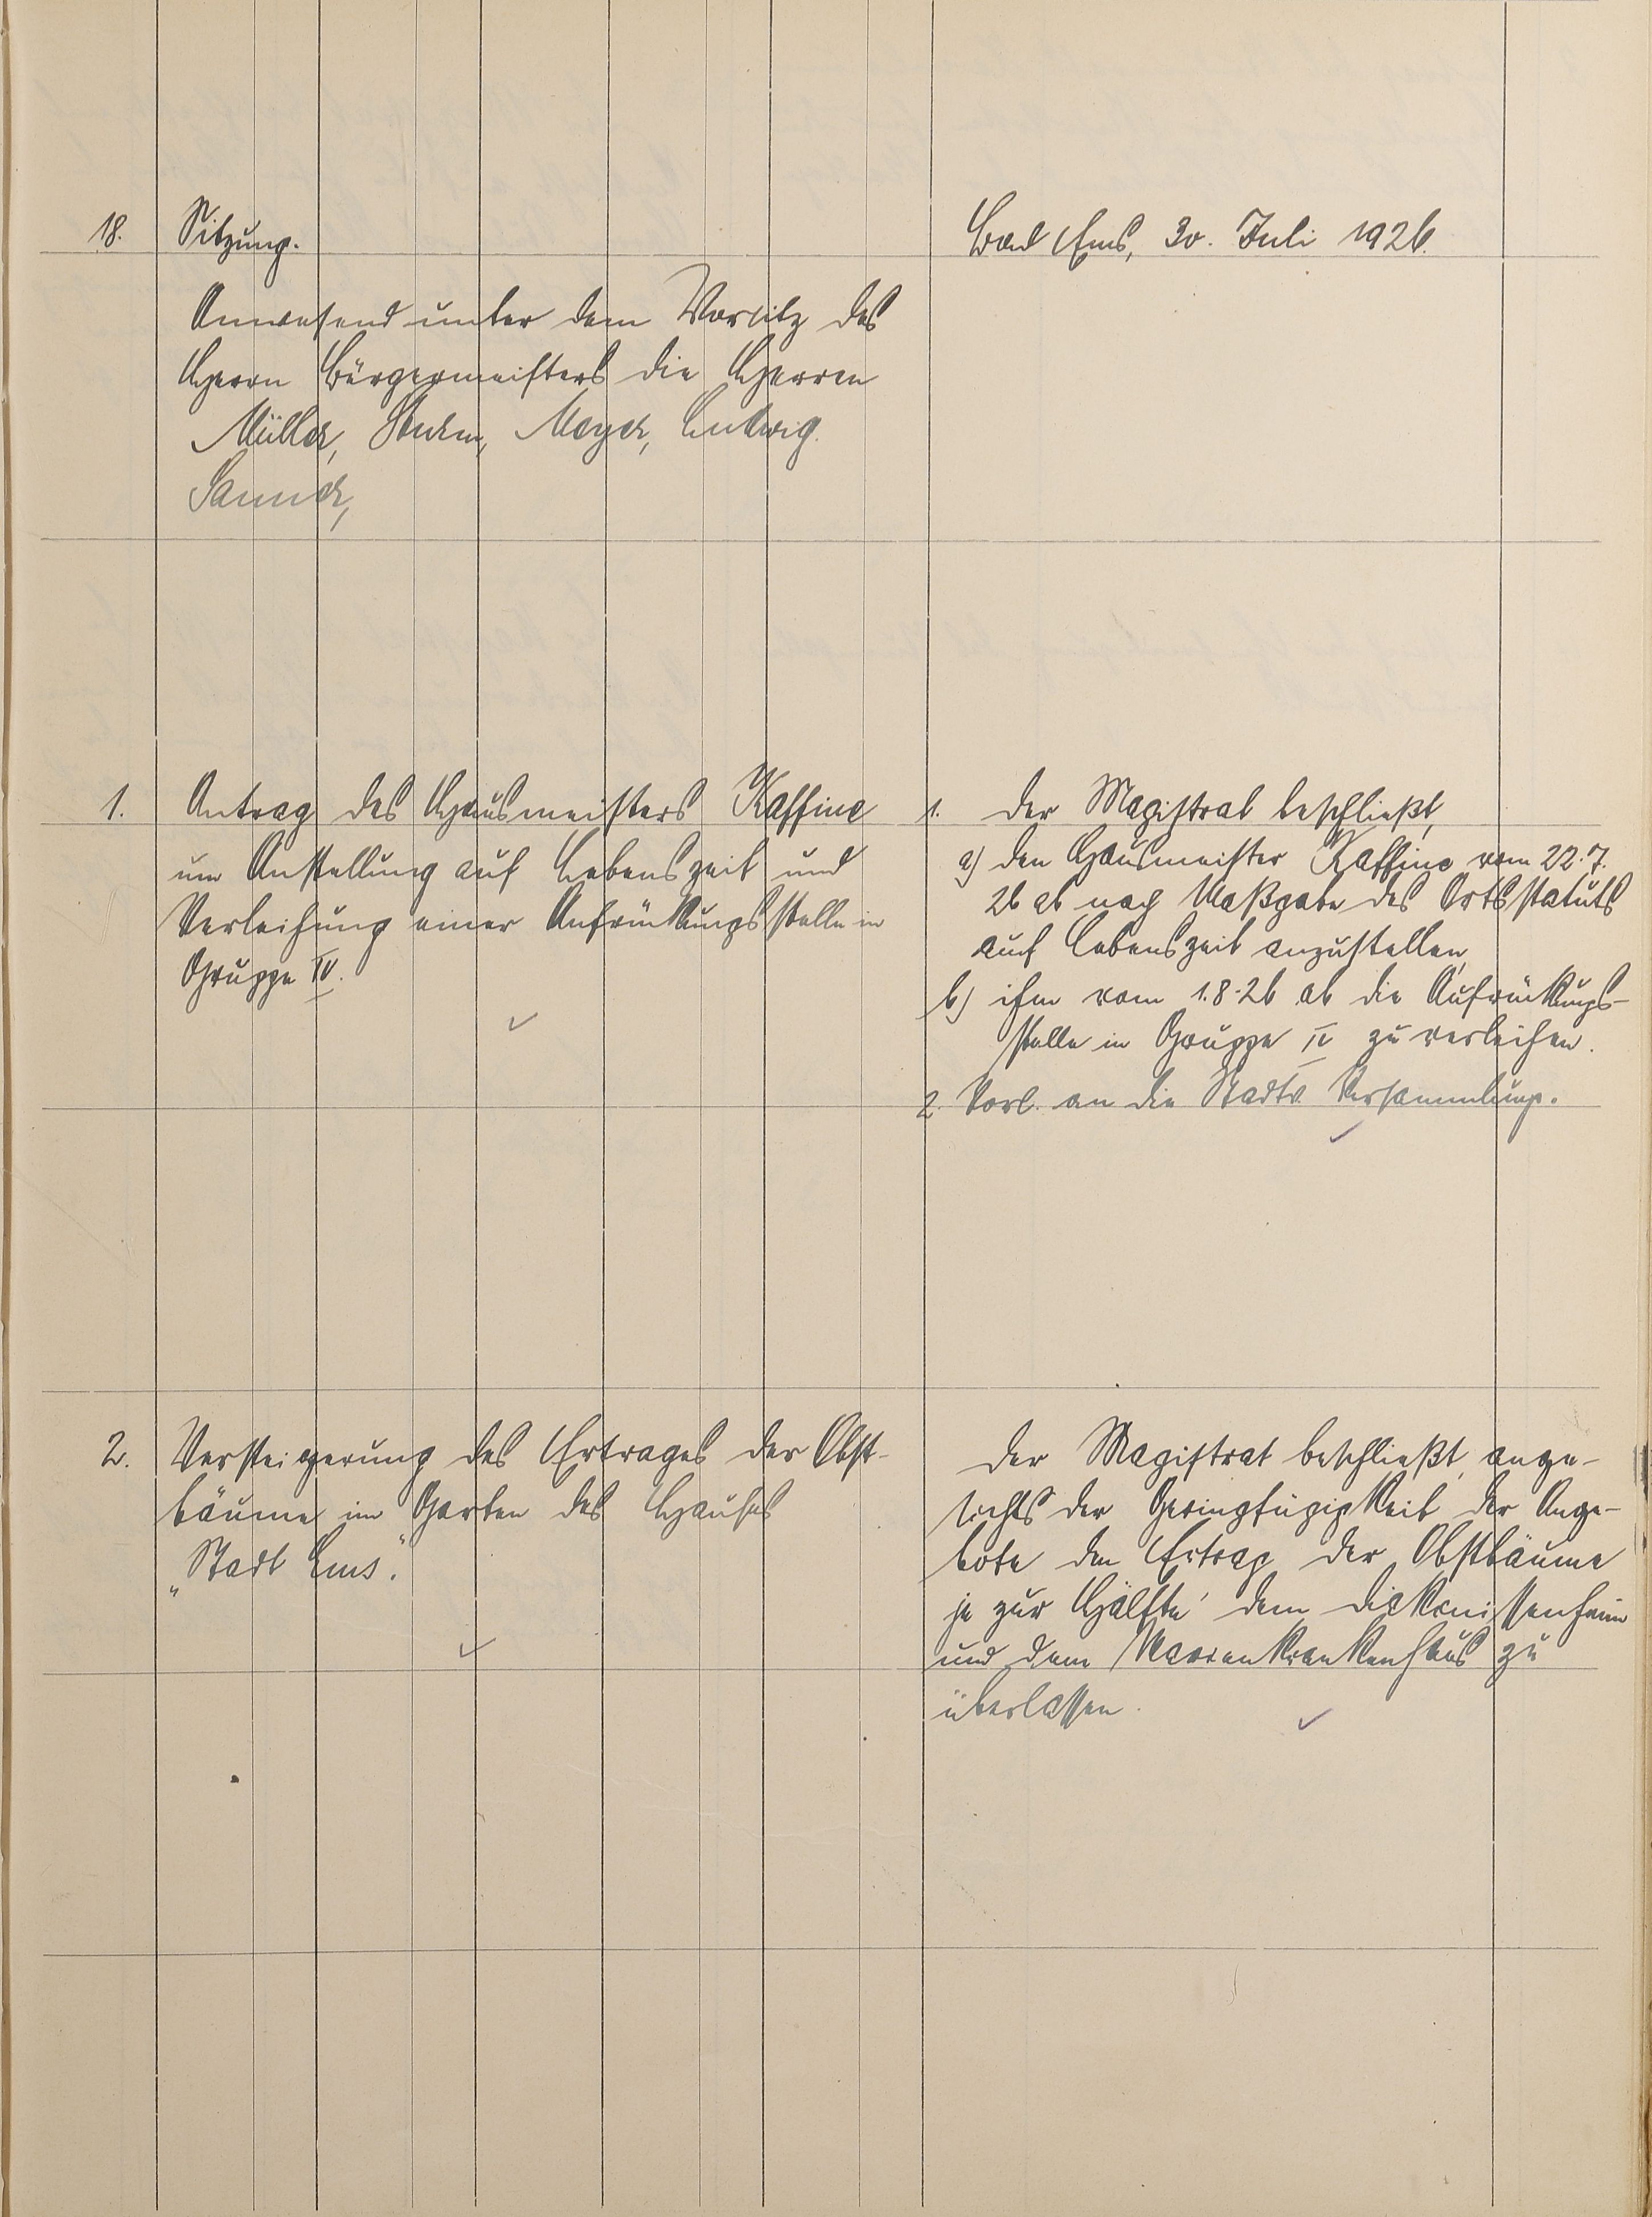 18. Sitzung.
Bad Ems, 30. Juli 1926.
Anwesend unter dem Vorsitz des
Herrn Bürgermeisters die Herren
Müller, Sturm, Meyer, Ludwig.
Sanner,
1. Antrag des Hausmeisters Kaffine
um Anstellung auf Lebenszeit und
Verleihung einer Aufrückungsstelle in
Gruppe IV.
1. Der Magistrat beschließt,
a) den Hausmeister Kaffine vom 22.7.
26 ab nach Maßgabe des Ortsstatuts
auf Lebenszeit anzustellen,
b) ihm vom 1.8.26 ab die Aufrückungs-
stelle in Gruppe IV zu verleihen.
2. Vorl. an die Stadtv. Versammlung.
2. Versteigerung des Ertrages der Obst-
bäume im Garten des Hauses
„Stadt Ems".
Der Magistrat beschließt, ange-
sichts der Geringfügigkeit der Ange-
bote den Ertrag der Obstbäume
je zur Hälfte dem Diakonissenheim
und dem Marienkrankenhaus zu
überlassen.